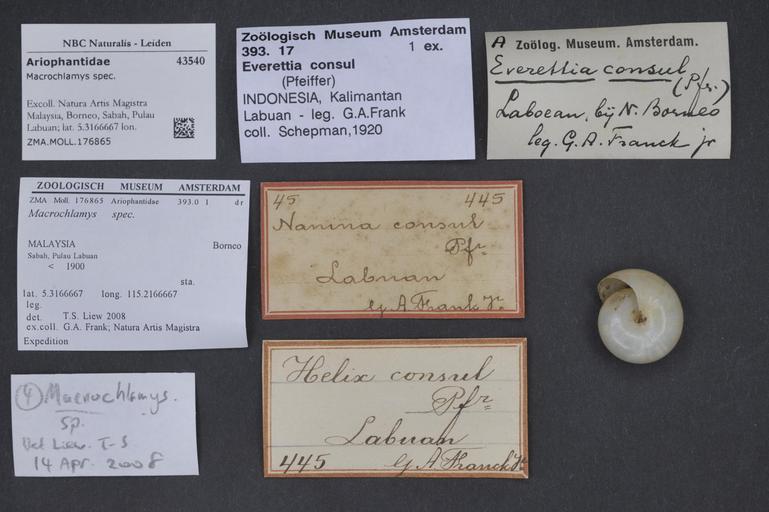 NBC Naturalis - Leiden
Ariophantidae 43540
Macrochlamys spec.
Excoll. Natura Artis Magistra
Malaysia, Borneo, Sabah, Pulau
Labuan; lat. 5.3166667 lon.
ZMA.MOLL.176865
Zoölogisch Museum Amsterdam
393. 17 1 ex.
Everettia consul
(Pfeiffer)
INDONESIA, Kalimantan
Labuan - leg. G.A.Frank
coll. Schepman,1920
A Zoölog. Museum. Amsterdam.
Everettia consul
(Pfr.)
Laboean, bij N. Borneo
leg. G. A. Franck jr
ZOOLOGISCH MUSEUM AMSTERDAM
ZMA Moll. 176865 Ariophantidae 393.0 1 dr
Macrochlamys spec.
MALAYSIA Borneo
Sabah, Pulau Labuan
< 1900
sta.
lat. 5.3166667 long. 115.2166667
leg.
det. T.S. Liew 2008
ex.coll. G.A. Frank; Natura Artis Magistra
Expedition
45 445
Nanina consul
Pfr
Labuan
G A Frank Jr.
④ Macrochlamys.
sp.
Det Liew. T-S
14 Apr. 2008
Helix consul
Pfr
Labuan
445 G A Franck Jr